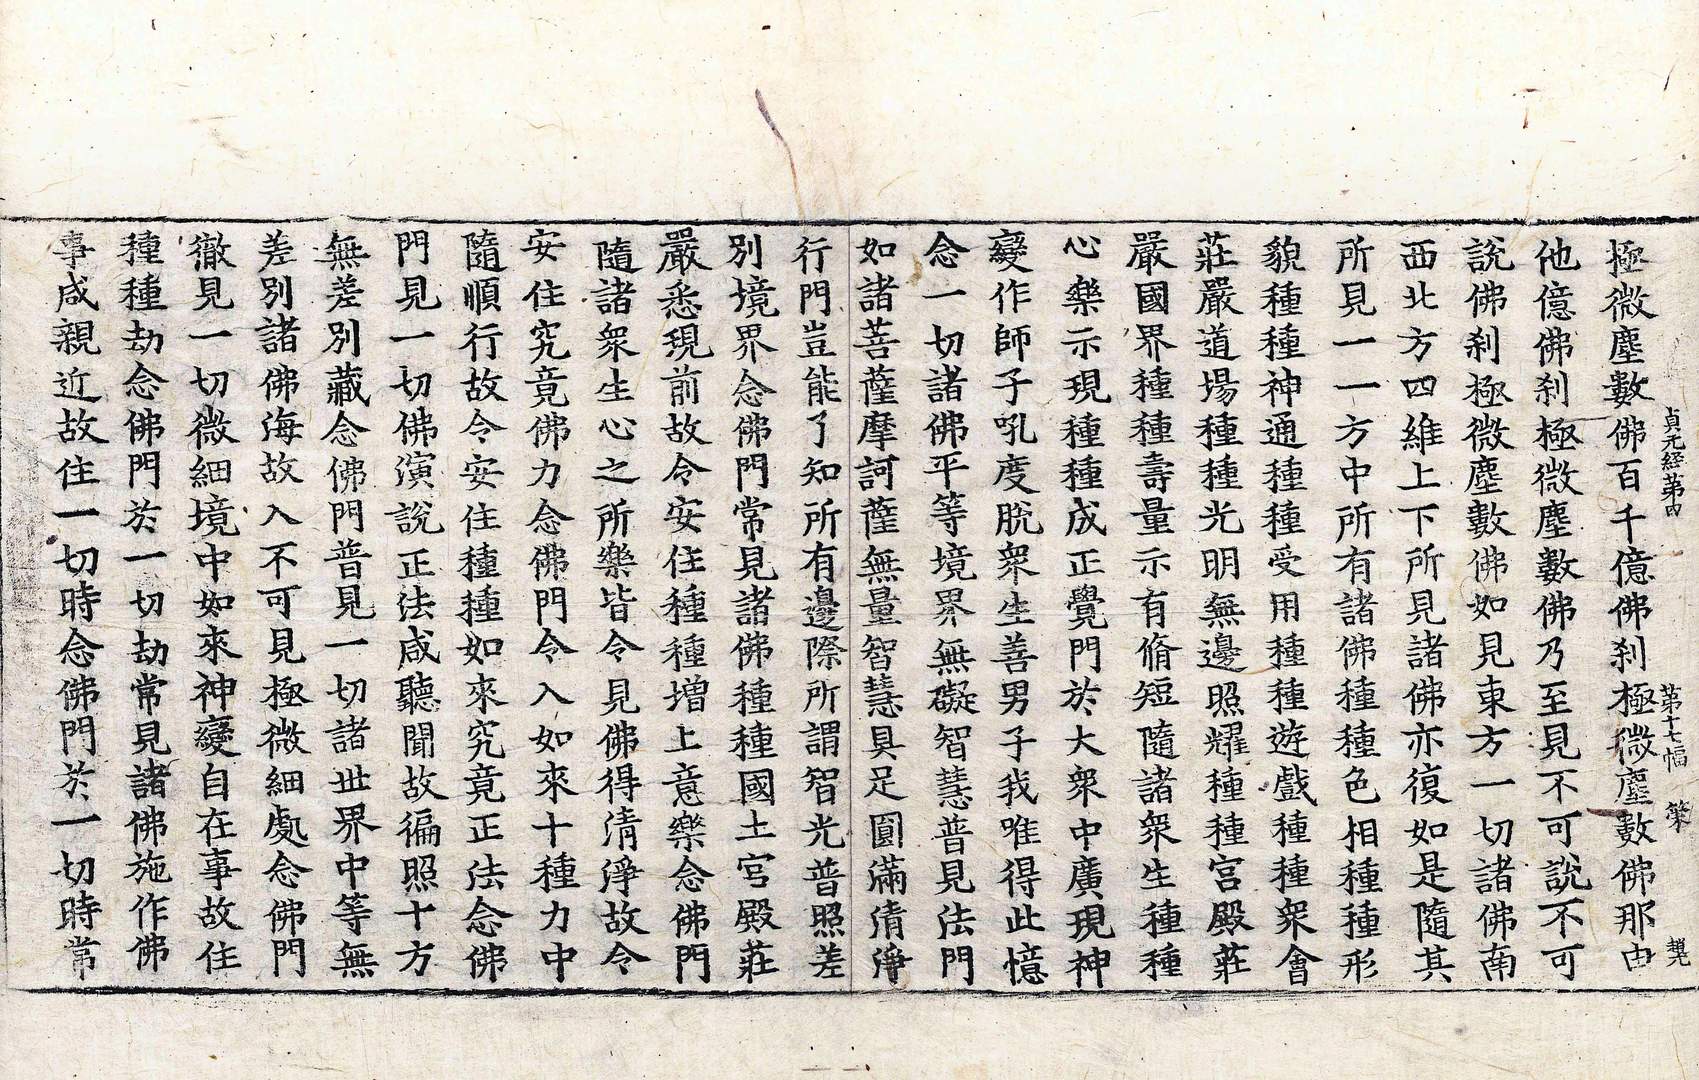 貞元経第四 第十七幅 策
極微塵數佛百千億佛刹極微塵數佛那由
他億佛刹極微塵數佛乃至見不可說不可
說佛刹極微塵數佛如見東方一切諸佛南
西北方四維上下所見諸佛亦復如是隨其
所見一一方中所有諸佛種種色相種種形
貌種種神通種種受用種種遊戲種種眾會
莊嚴道場種種光明無邊照耀種種宮殿莊
嚴國界種種壽量示有脩短隨諸眾生種種
心樂示現種種成正覺門於大眾中廣現神
變作師子吼度脫眾生善男子我唯得此憶
念一切諸佛平等境界無礙智慧普見法門
如諸菩薩摩訶薩無量智慧具足圓滿清淨
行門豈能了知所有邊際所謂智光普照差
別境界念佛門常見諸佛種種國土宮殿莊
嚴悉現前故令安住種種增上意樂念佛門
隨諸眾生心之所樂皆令見佛得清淨故令
安住究竟佛力念佛門令入如來十種力中
隨順行故令安住種種如來究竟正法念佛
門見一切佛演說正法咸聽聞故徧照十方
無差別藏念佛門普見一切諸世界中等無
差別諸佛海故入不可見極微細處念佛門
徹見一切微細境中如來神變自在事故住
種種劫念佛門於一切劫常見諸佛施作佛
事咸親近故住一切時念佛門於一切時常